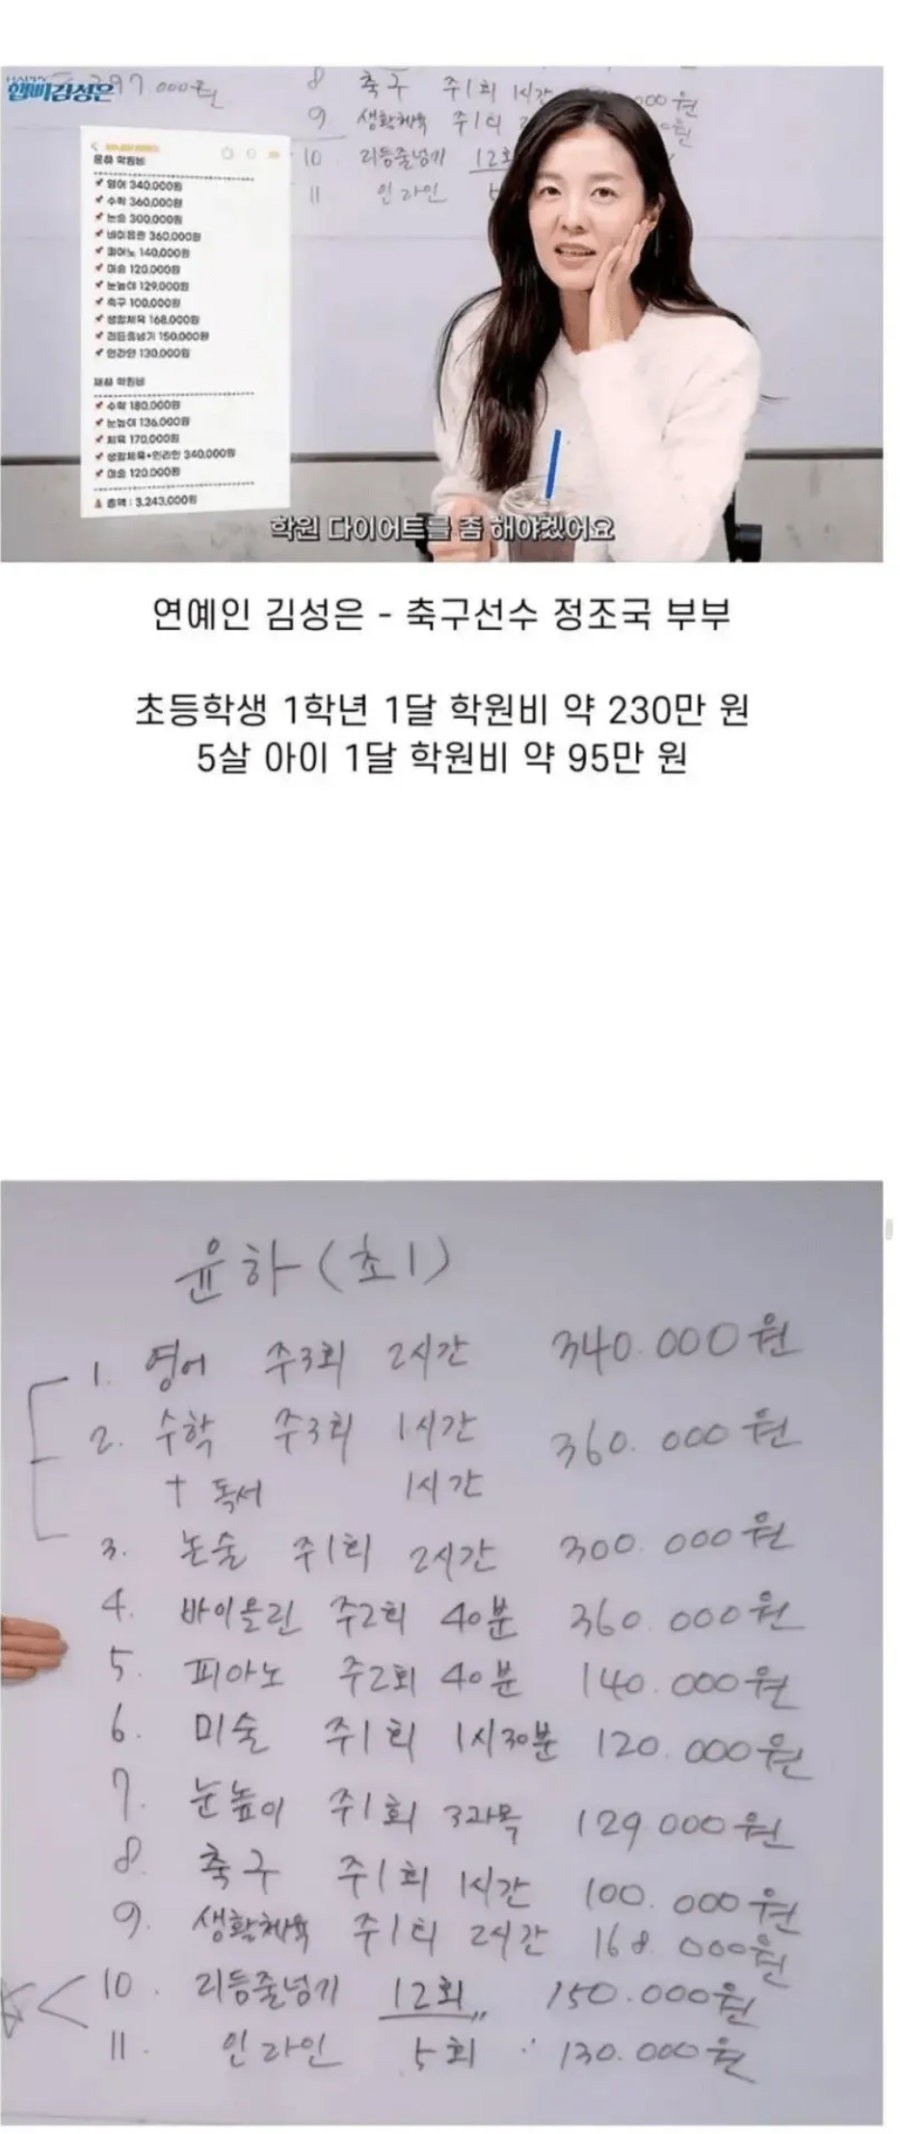 햅삐김성은
397.000원
8 축구 주1회 1시간 000원
9 생활체육 주1회 2
10 리듬줄넘기 12회
11 인라인 5
윤하 학원비
영어 340,000원
수학 360,000원
논술 300,000원
바이올린 360,000원
피아노 140,000원
미술 120,000원
눈높이 129,000원
축구 100,000원
생활체육 168,000원
리듬줄넘기 150,000원
인라인 130,000원
재하 학원비
수학 180,000원
눈높이 136,000원
체육 170,000원
생활체육+인라인 340,000원
미술 120,000원
총액 : 3,243,000원
학원 다이어트를 좀 해야겠어요
연예인 김성은 - 축구선수 정조국 부부
초등학생 1학년 1달 학원비 약 230만 원
5살 아이 1달 학원비 약 95만 원
윤하 (초1)
1. 영어 주3회 2시간 340.000원
2. 수학 주3회 1시간 360.000원
+ 독서 1시간
3. 논술 주1회 2시간 300.000원
4. 바이올린 주2회 40분 360.000원
5. 피아노 주2회 40분 140.000원
6. 미술 주1회 1시30분 120.000원
7. 눈높이 주1회 3과목 129.000원
8. 축구 주1회 1시간 100.000원
9. 생활체육 주1회 2시간 168.000원
10. 리듬줄넘기 12회 150.000원
11. 인라인 5회 130.000원